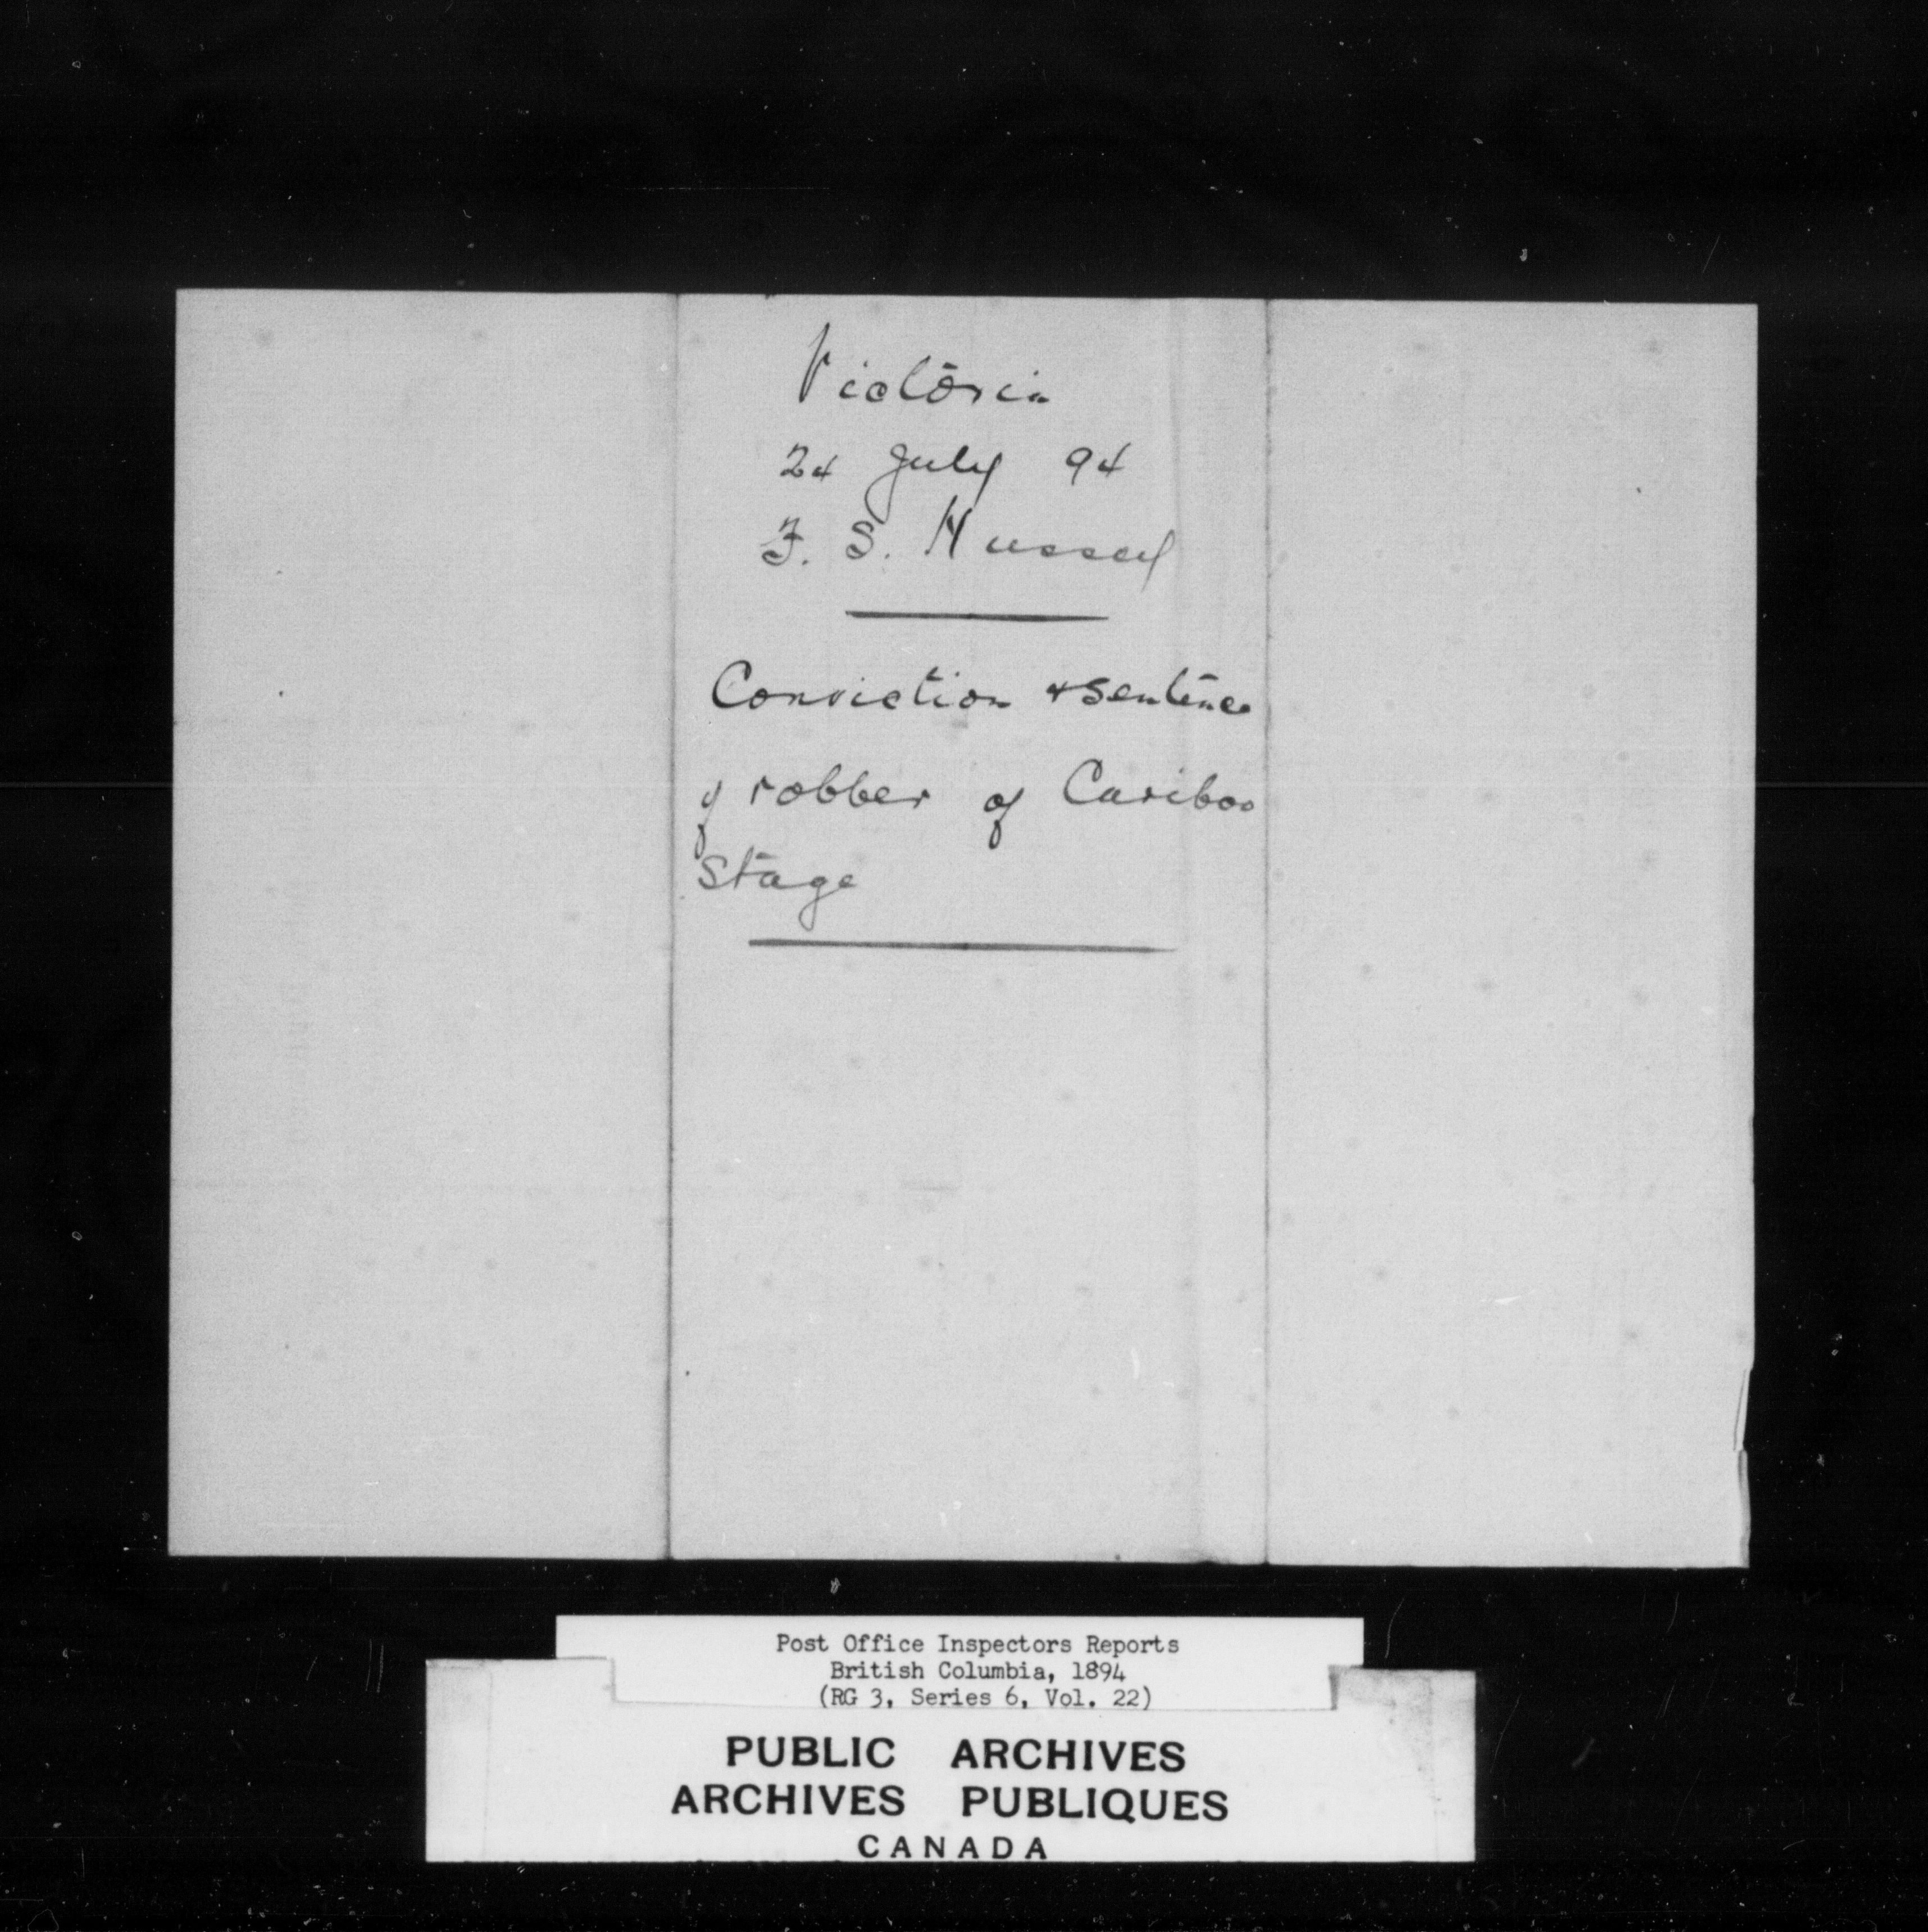 Victoria
24 July 94
F. S. Hussey
Conviction & Sentence
of robber of Cariboo
Stage
Post Office Inspectors Reports
British Columbia, 1894
(RG 3, Series 6, Vol. 22)
PUBLIC ARCHIVES
ARCHIVES PUBLIQUES
CANADA